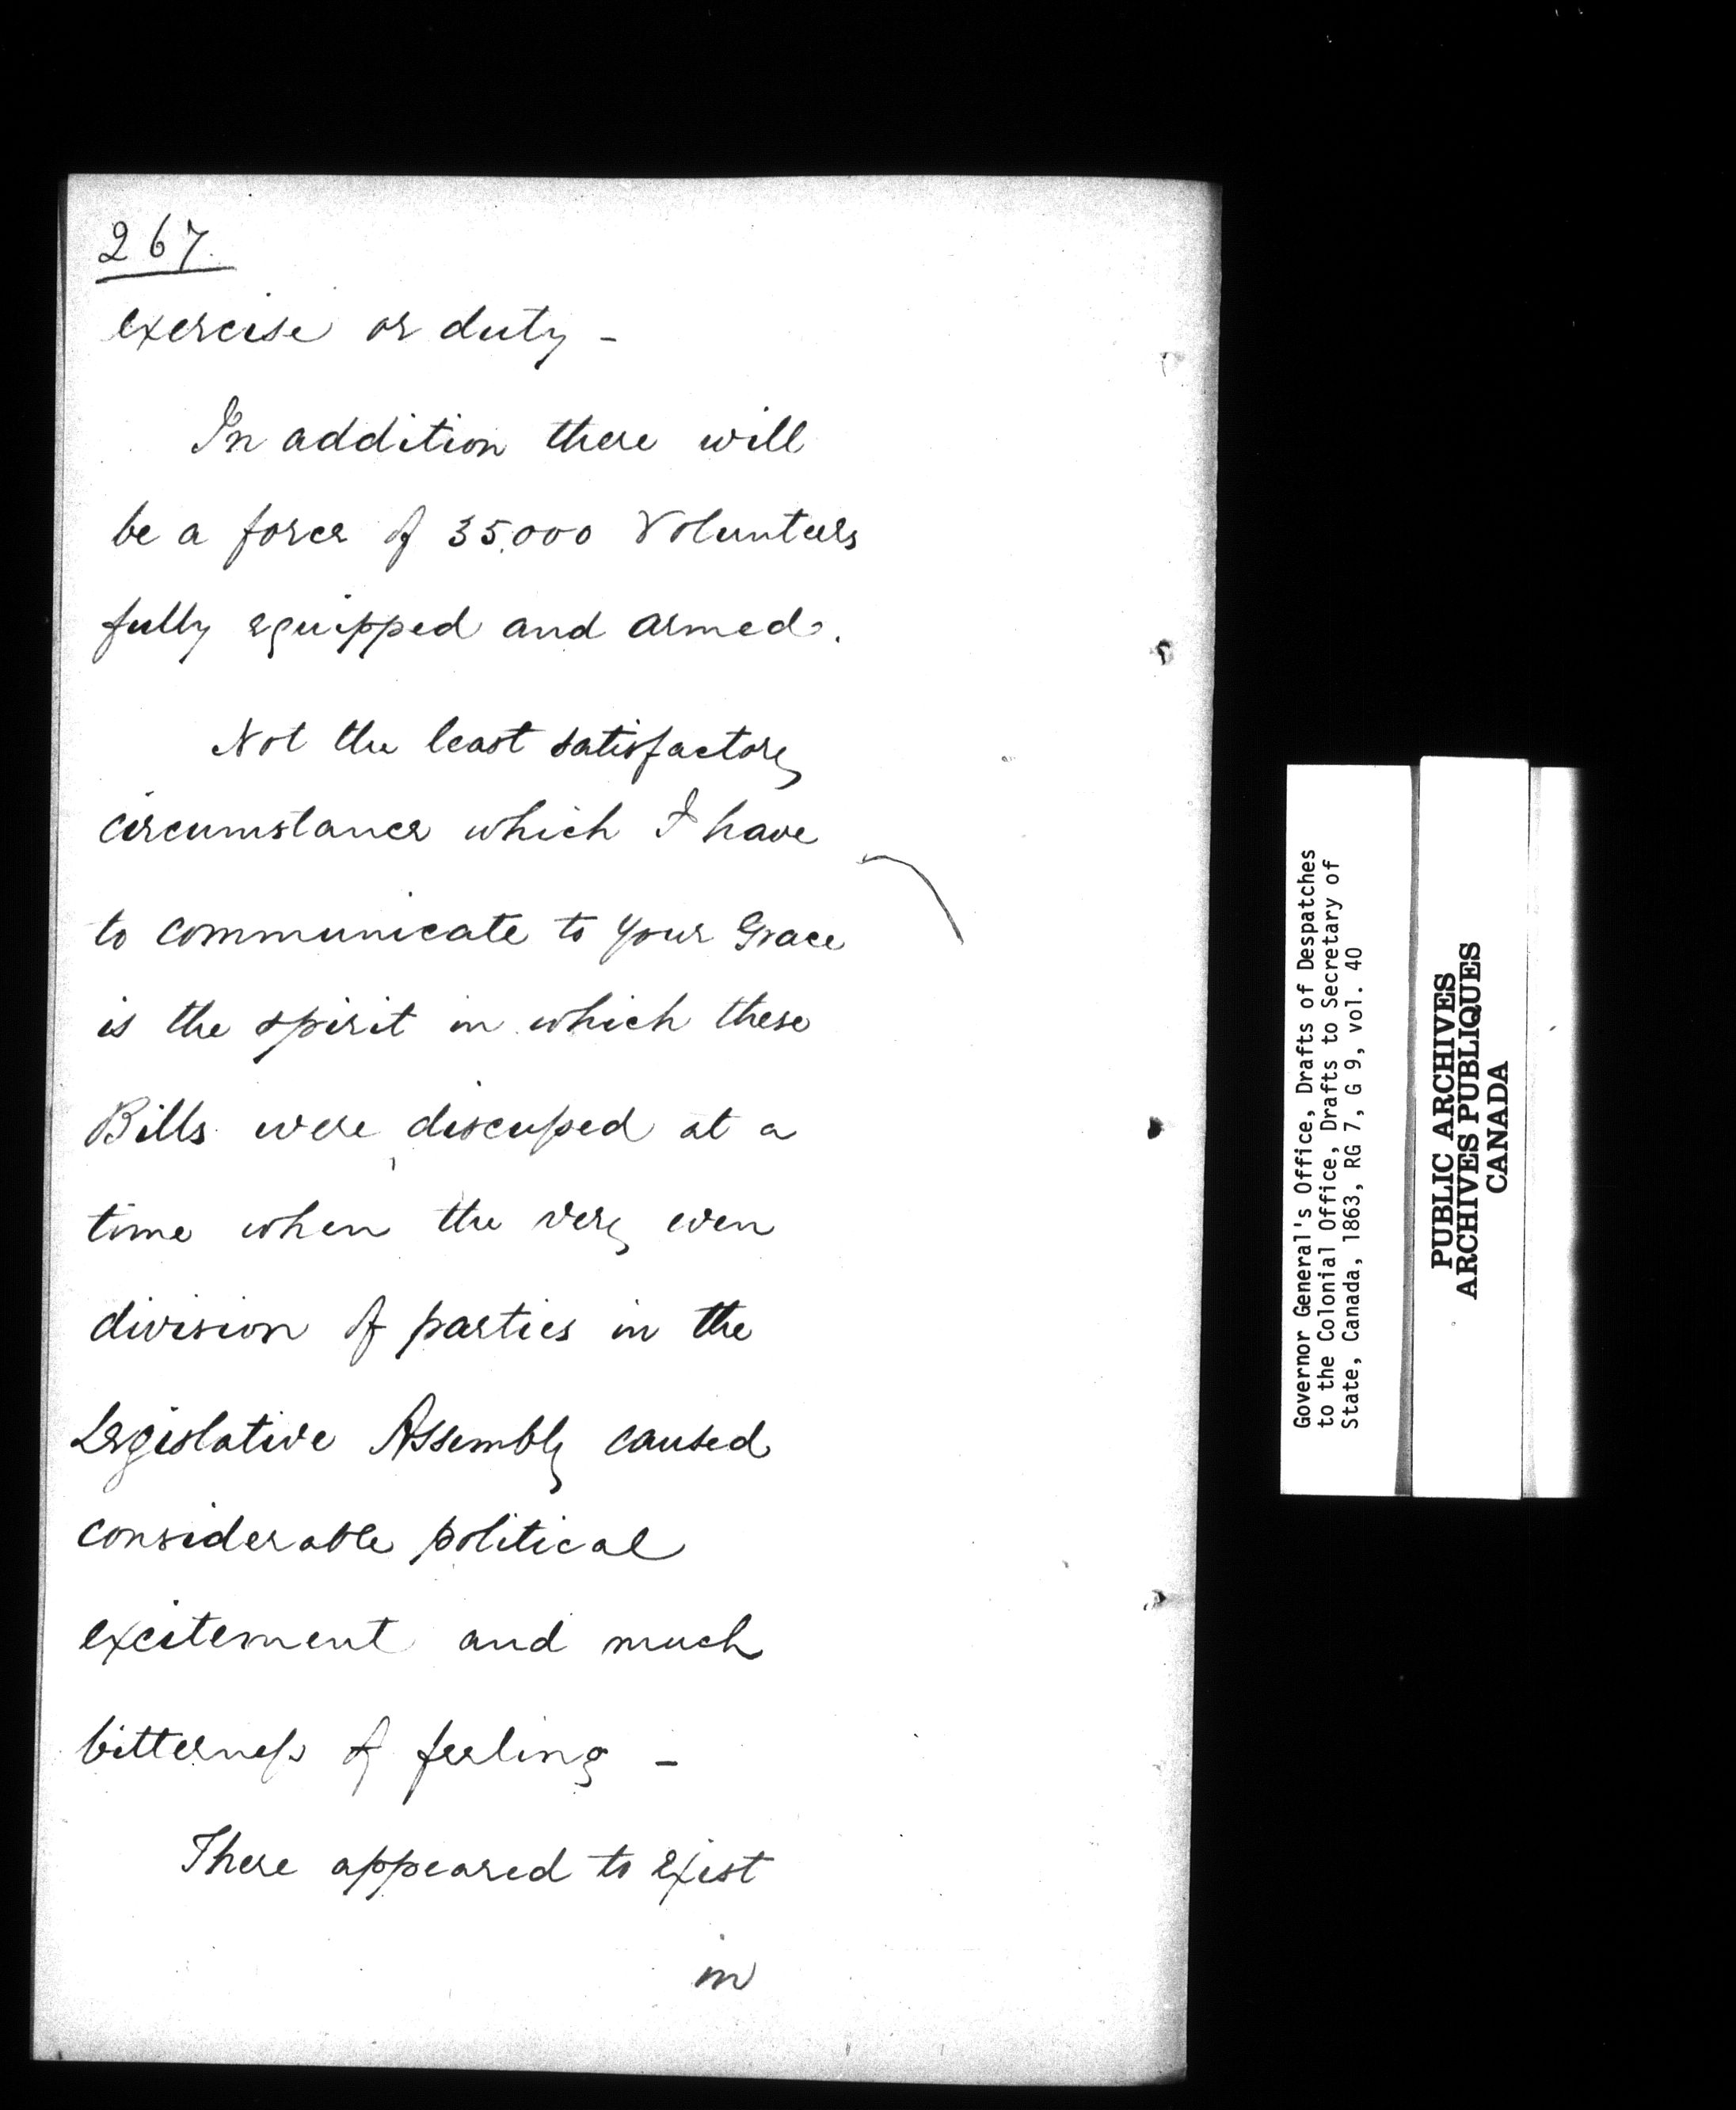 267.
exercise or duty -
In addition there will
be a force of 35.000 Volunteers
fully equipped and armed.
Not the least satisfactory
circumstance which I have
to communicate to your Grace
is the spirit in which these
Bills were discussed at a
time when the very even
division of parties in the
Legislative Assembly caused
considerable political
excitement and much
bitterness of feeling -
There appeared to exist
in
Governor General's Office, Drafts of Despatches
to the Colonial Office, Drafts to Secretary of
State, Canada, 1863, RG 7, G 9, vol. 40
PUBLIC ARCHIVES
ARCHIVES PUBLIQUES
CANADA